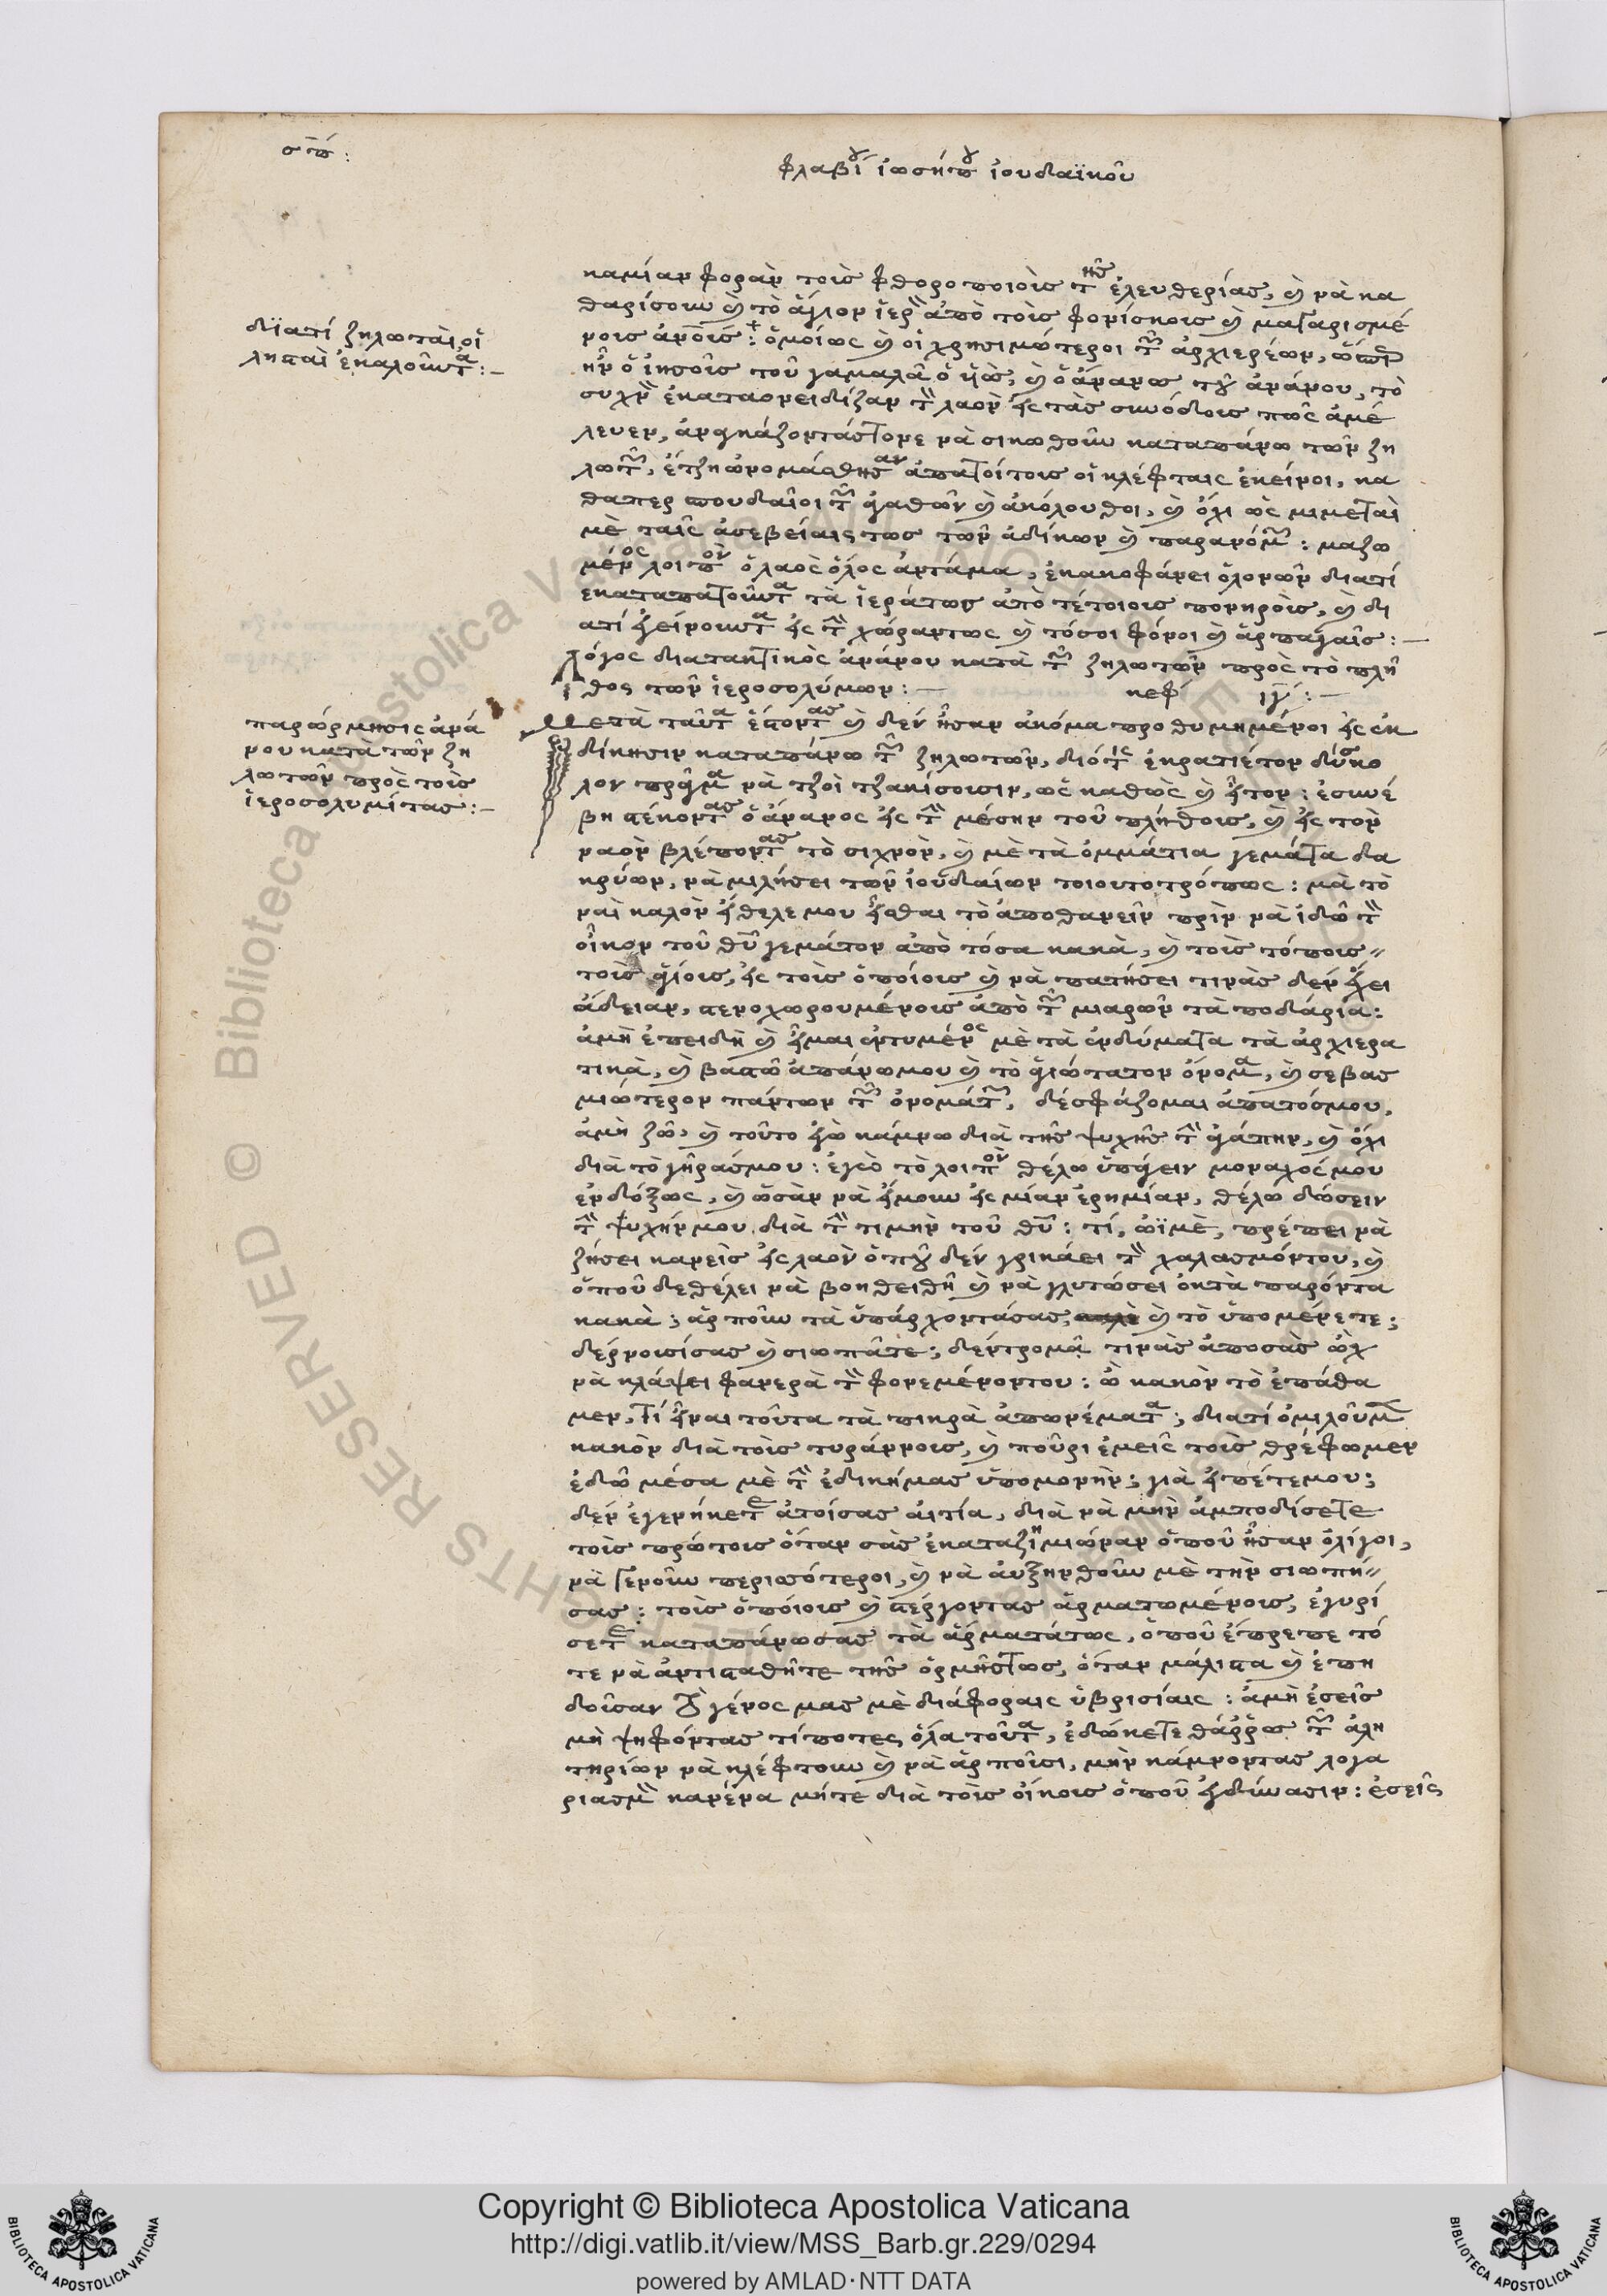 σπ´:
φλαβίου ἰωσήπου ἰουδαϊκοῦ
καμίαν φορὰν τοὶς φθοροποιοὶς τῆς ἐλευθερίας, καὶ νὰ κα
θαρίσουν καὶ τὸ ἅγιον ἱερὸν ἀπὸ τοὶς φονίσκοις καὶ μαγαρισμέ
νοις ὁμοίως καὶ οἱ χρησιμώτεροι τῶν ἀρχιερέων,
ἦν ὁ ἰησοῖς τοῦ γαμαλᾶ ὁ ὑιὸς, καὶ ὁ ἄνανος τοῦ ἀνάνου, τὸ
συχνὸν ἐκαταονειδίζαν τὸν λαὸν εἰς τὰς συνόδοις πῶς ἀμέ
λευεν, ἀναγκάζοντάς τονε νὰ σικωθοῦν καταπάνω τῶν ζη
λωτῶν, ἔτζη ὠνομάσθησαν ἀπατοίτοις οἱ κλέφταις ἐκείνοι, κα
θαπερ σπουδαῖοι τῶν ἀγαθῶν καὶ ἀκόλουθοι, καὶ ὄχι ὡς μιμεταὶ
μὲ ταῖς ἀσεβείαις τως τῶν ἀδίκων καὶ παρανόμων : μαζω
μένος λοιπὸν ὁ λαὸς ὅλος ἀντάμα, ἐκακοφάνει ὁλονῶν διατί
ἐκαταπατοῦντα τὰ ἱεράτως ἀπὸ τέτοιοις πονηροὶς, καὶ δι
ατί ἐγείνουντα εἰς τὴν χώραντως καὶ τόσοι φόνοι καὶ ἁρπαγαῖς : —
Λόγος διατακτικὸς ἀνάνου κατὰ τῶν ζηλωτῶν πρὸς τὸ πλῆ
θος τῶν ἱεροσολύμων : — κεφ´ ιγ´ : —
Μετὰ ταῦτα ἔστοντας καὶ δὲν ἦσαν ἀκόμα προθυμημένοι εἰς ἐκ
δίκησιν καταπάνω τῶν ζηλωτῶν, διότις ἐκρατιέτον δύσκο
λον πρᾶγμα νὰ τζοὶ τζακίσοισιν, ὡς καθὼς καὶ εἶτον : ἐσυνέ
βη στέκοντας ὁ άνανος εἰς τὴν μέσην τοῦ πλήθοις, καὶ εἰς τὸν
ναὸν βλέποντας τὸ σιχνὸν, καὶ μὲ τὰ ὀμμάτια γεμάτα δα
κρύων, νὰ μιλήσει τῶν ἰουδαίων τοιουτοτρόπως : μὰ τὸ
ναὶ καλὸν ἤθελε μου εἶσθαι τὸ ἀποθανεῖν πρὶν νὰ ἰδῶ τὸν
οἶκον τοῦ θῦ γεμάτον ἀπὸ τόσα κακὰ, καὶ τοὶς τόποις
τοὶς ἁγίοις, εἰς τοὶς ὁποίοις καὶ νὰ πατήσει τινὰς δὲν ἔχει
ἄδειαν, στενοχωρουμένοις ἀπὸ τῶν μιαρῶν τὰ ποδάρια :
ἀμὴ ἐπειδὴ καὶ εἶμαι ἐντυμένος μὲ τὰ ἐνδύματα τὰ ἀρχιερα
τικὰ, καὶ βαστῶ ἀπάνωμου καὶ τὸ ἁγιώτατον ὄνομα, καὶ σεβας
μιώτερον πάντων τῶν ὀνομάτων, δέσφάζομαι ἀπατόσμου,
ἀμὴ ζῶ, καὶ τοῦτο ἐγὼ κάμνω διὰ τῆς ψυχῆς τὴν ἀγάπην, καὶ ὄχι
διὰ τὸ γῆρασμου : ἐγὼ τὸ λοιπὸν θέλω ὑπάγειν μοναχόςμου
ἐνδόξως, καὶ ὡσὰν νὰ ἤμουν εἰς μίαν ἐρημίαν, θέλω δώσειν
τὴν ψυχήν μου διὰ τὴν τιμὴν τοῦ θῦ : τί, ὠϊμὲ, πρέπει νὰ
ζήσει κανεὶς εἰς λαὸν ὁποῦ δὲν γρικάει τὸν χαλασμόντου, καὶ
ὁποῦ δεθέλει νὰ βοηθειθῆ καὶ νὰ γλυτώσει ὀκτὰ παρόντα
κακὰ ; ἁρποῦν τὰ ὑπάρχοντάσας, καὶ τὸ ὑπομένετε ;
δέρνουσίσας καὶ σιωπᾶτε ; δέντρομᾶ τινὰς ἀποσὰς
νὰ κλάψει φανερὰ τὸν φονεμένοντου : ὦ κακὸν τὸ ἐπάθα
μεν, τί εἶναι τοῦτα τὰ πικρὰ ἀπωνέματα ; διατί ὁμιλοῦμεν
κακὸν διὰ τοὶς τυράννοις, καὶ ποῦρι ἐμεῖς τοὶς θρέφωμεν
ἐδῶ μέσα μὲ τὴν ἐδικήμας ὑπομονὴν ; γιὰ εἰπέτεμου ;
δὲν ἐγενήκετε ἀτοίσας αἰτία, διὰ νὰ μὴν ἀμποδίσετε
τοὶς πρώτοις ὅταν σᾶς ἐκαταζημιώναν ὁποῦ ἦσαν ὀλίγοι,
νὰ γενοῦν περισότεροι, καὶ νὰ ἀυξηνθοῦν μὲ τὴν σιωπή
σας : τοὶς ὁποίοις καὶ στέργοντας ἁρματωμένοις, ἐγυρί
σετε καταπάνωσας τὰ άρματάτως, ὁποῦ ἔπρεπε τό
τε νὰ ἀντισταθῆτε τῆς ὁρμῆστως, ὅταν μάλιστα καὶ ἐπη
δοῦσαν τὸ γένος μας μὲ διάφοραις ὑβρισίαις : ἀμὴ ἐσεῖς
μὴ ψηφόντας τίποτες ὅλα τοῦτα, ἐδώκετε θάρρως τῶν ἀλη
τηρίων νὰ κλέφτουν καὶ νὰ ἁρποῦσι, μὴν κάμνοντας λογα
ριασμὸν κανένα μήτε διὰ τοὶς οἴκοις ὁποῦ ἐγδύνασιν : ἐσεῖς
διατί ζηλωταὶ οἱ
λησταὶ ἐκαλοῦντα : —
παρώρμησις ἀνά
νου κατὰ τῶν ζη
λωτῶν πρὸς τοὶς
ἱεροσολυμίτας : —
Copyright © Biblioteca Apostolica Vaticana
http://digi.vatlib.it/view/MSS_Barb.gr.229/0294
powered by AMLAD·NTT DATA
BIBLIOTECA APOSTOLICA VATICANA
BIBLIOTECA APOSTOLICA VATICANA